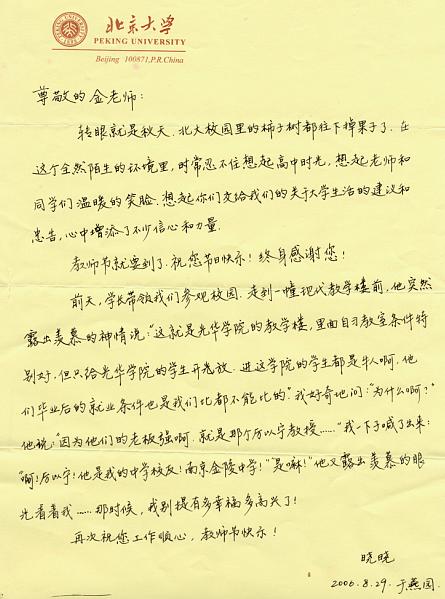 北京大学
PEKING UNIVERSITY
Beijing 100871,P.R.China
尊敬的金老师：
转眼就是秋天，北大校园里的柿子树都往下掉果子了。在
这个全然陌生的环境里，时常忍不住想起高中时光，想起老师和
同学们温暖的笑脸，想起你们交给我们的关于大学生活的建议和
忠告，心中增添了不少信心和力量。
教师节就要到了，祝您节日快乐！终身感谢您！
前天，学长带领我们参观校园，走到一幢现代教学楼前，他突然
露出羡慕的神情说：“这就是光华学院的教学楼，里面自习教室条件特
别好，但只给光华学院的学生开放。进这学院的学生都是牛人啊，他
们毕业后的就业条件也是我们比都不能比的。”我好奇地问：“为什么啊？”
他说：“因为他们的老板强啊，就是那个厉以宁教授……”我一下子喊了出来：
“啊！厉以宁！他是我的中学校友！南京金陵中学！”“是嘛！”他又露出羡慕的眼
光看着我……那时候，我别提有多幸福多高兴了！
再次祝您工作顺心，教师节快乐！
晓晓
2006.8.29.于燕园.